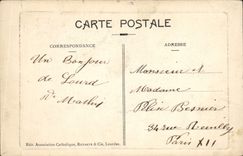 CARTE POSTALE
CORRESPONDANCE
ADRESSE
Un Bonjour
de Lourd
Mathy
Monsieur et
Madame
Plin Besnier
34 rue Reuilly
Paris XII
Edit. Association Catholique, & Cie, Lourdes.